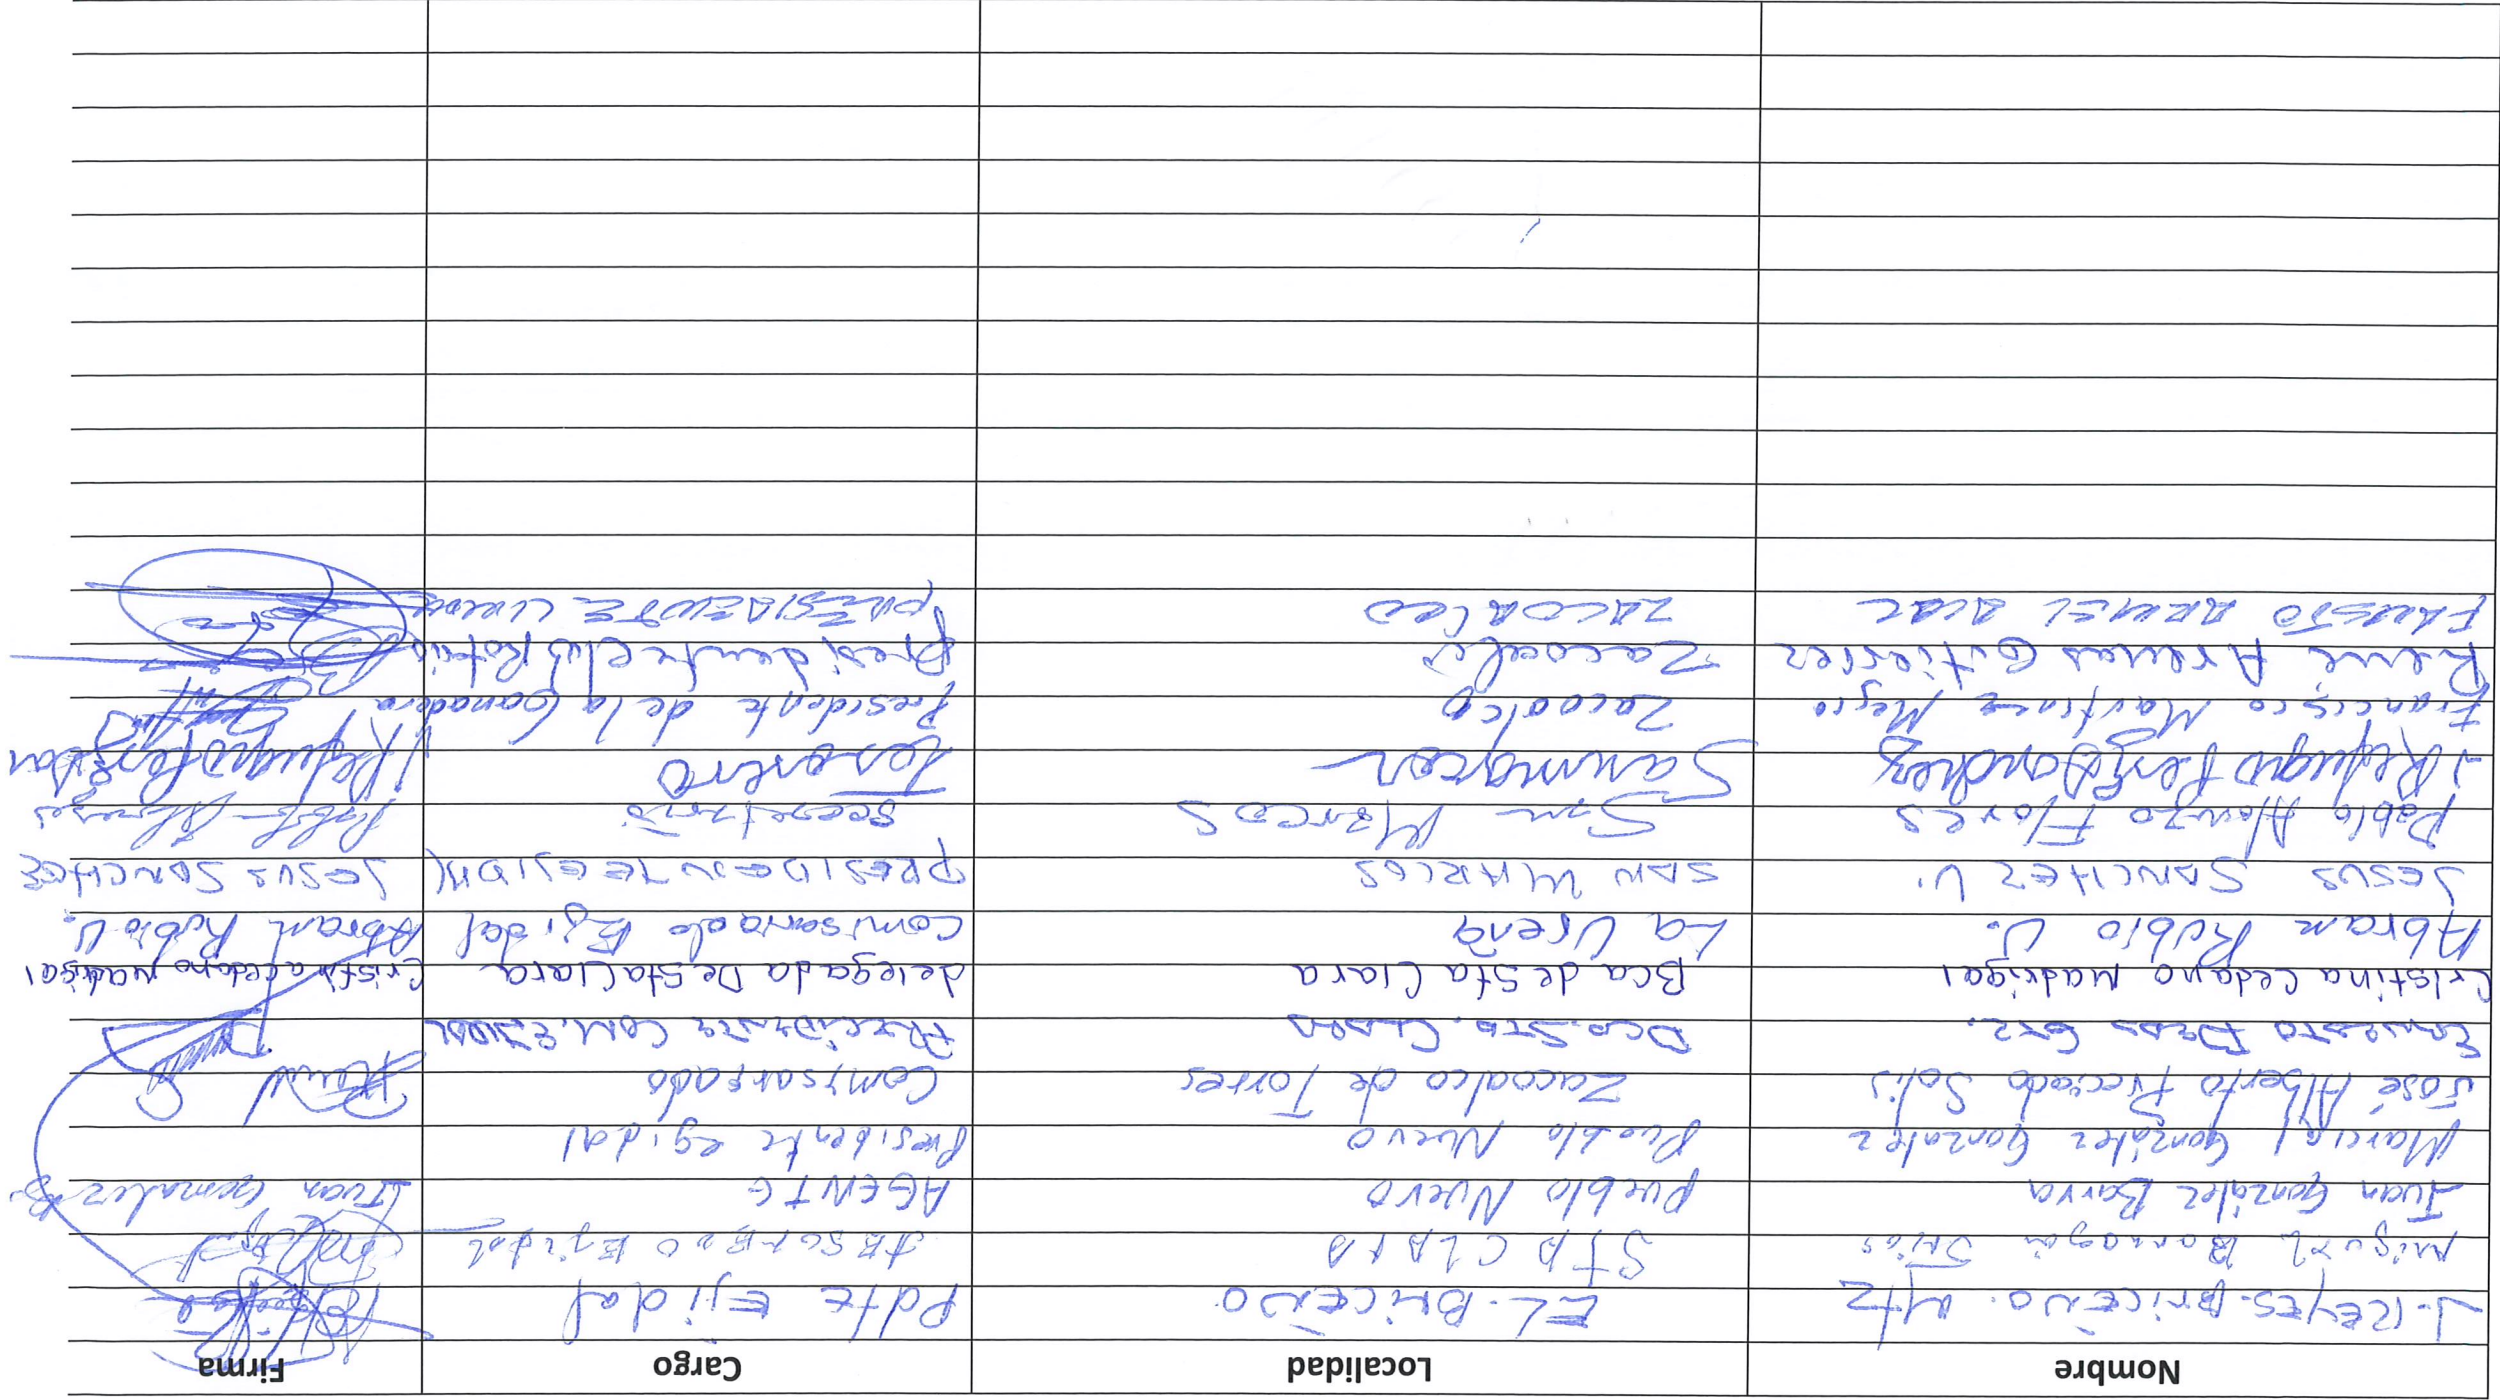 Nombre Localidad Cargo Firma
J. REYES. BRICEÑO. MTZ EL. BRICEÑO. Pdte Ejidal
Miguel Barragán STA CLARA TESORERO Ejidal
Juan González Barva Pueblo Nuevo AGENTE Juan Gonzalez B.
Marcial González Gonzalez Pueblo Nuevo Presidente egidal
José Alberto Preciado Solis Zacoalco de Torres Comisariado
ERNESTO GTZ. BCA. STA. CLARA
Cristina Cedano Madrigal Bca de Sta Clara delegada De Sta Clara Cristina Cedano Madrigal
Abram Rubio U. La Ureña Comisariado Egidal Abram Rubio U.
JESUS SANCHEZ V. SAN MARCOS PRESIDENTE EJIDAL JESUS SANCHEZ
Pablo Alonzo Flores San Marcos secretario
J Refugio San marcos Tesorero
Francisco Martinez Mejia Zacoalco Presidente de la Ganadera
Rene Arenas Gutierrez Zacoalco Presidente Club
FAUSTO ZACOALCO PRESIDENTE